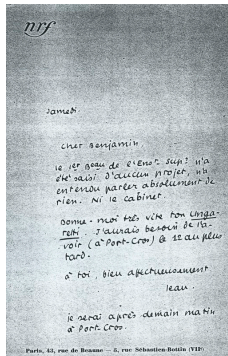 nrf
Samedi.
Cher Benjamin,
le 1er Beau de l'Ensᵗ Supʳ n'a
été saisi d'aucun projet, n'a
entendu parler absolument de
rien. Ni le cabinet.
Donne-moi très vite ton Unga-
retti. J'aurais besoin de l'a-
voir (à Port-Cros) le 12 au plus
tard.
à toi, bien affectueusement
Jean.
je serai après demain matin
à Port Cros.
Paris, 43, rue de Beaune — 5, rue Sébastien-Bottin (VIIᵉ)